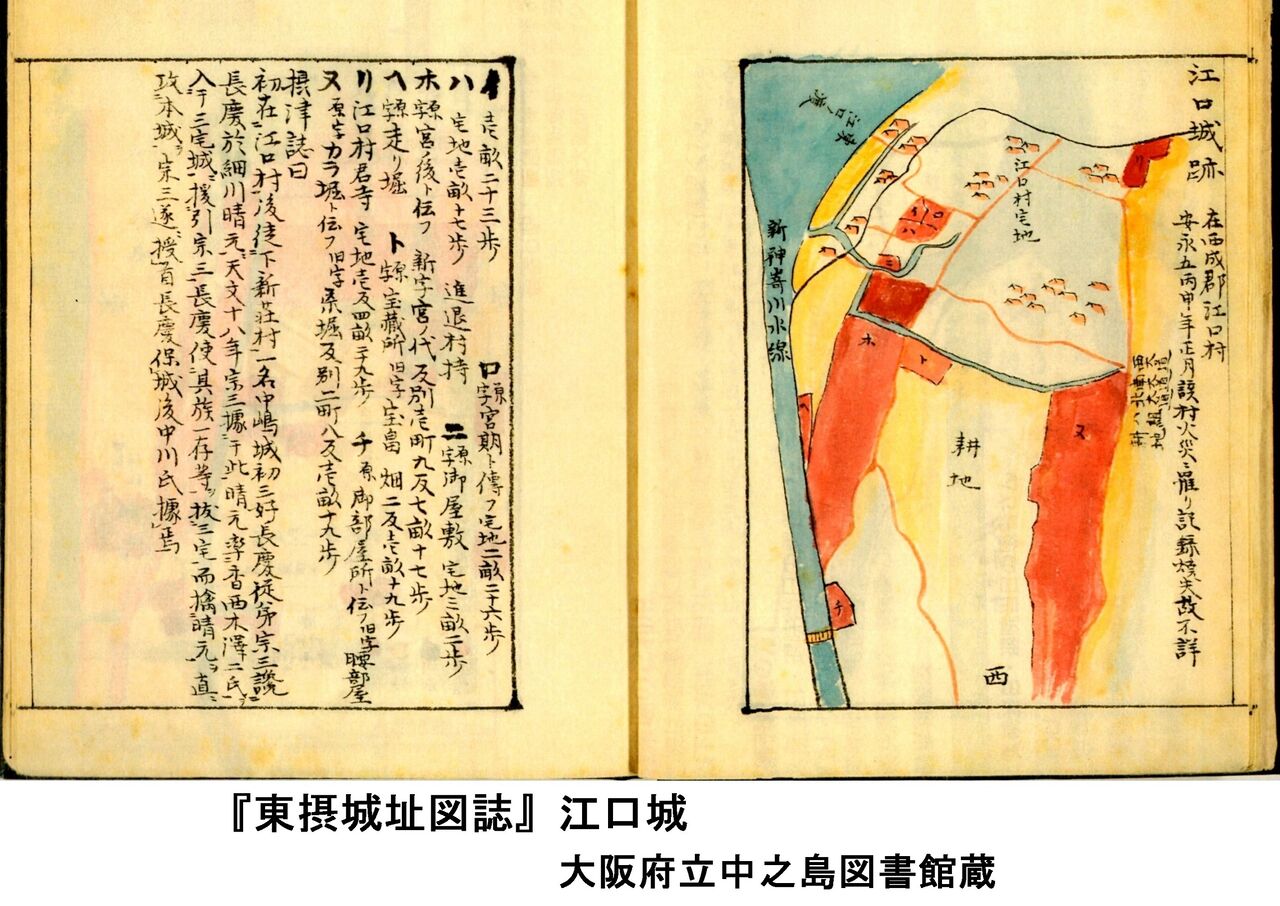 江口城跡
在西成郡江口村
安永五丙申年正月該村火災ニ罹リ記録焼失故不詳
東
江口ノ渡
新神嵜川水線
江口村宅地
リ
イ
ロ
ハ
ニ
ホ
ヘ
ト
チ
ヌ
耕地
西
イ 壱畝二十三歩 ロ 原字宮期ト傳フ宅地二畝二十六歩
ハ 宅地壱畝十七歩 進退村持 ニ 原字御屋敷 宅地三畝二歩
ホ 原字宮ノ後ト伝フ 新字宮ノ代 反別壱町九反七畝十七歩
ヘ 原字走り堀 ト 原字宝蔵所 旧字宝畠 畑二反壱畝十九歩
リ 江口村君寺 宅地壱反四畝二十九歩 チ 原御部屋所ト伝フ 旧字腰部屋
ヌ 原字カラ堀ト伝フ 旧字 堀反別二町八反壱畝十九歩
摂津誌曰
初在江口村後徒下新荘村一名中嶋城初三好長慶徒弟宗三讒
長慶於細川晴元天文十八年宗三據于此晴元率香西木澤二氏
入于三宅城援引宗三長慶使其族一存等抜三宅而擒晴元ヲ直ニ
攻本城宗三遂授首長慶保城後中川氏據焉
『東摂城址図誌』江口城
大阪府立中之島図書館蔵